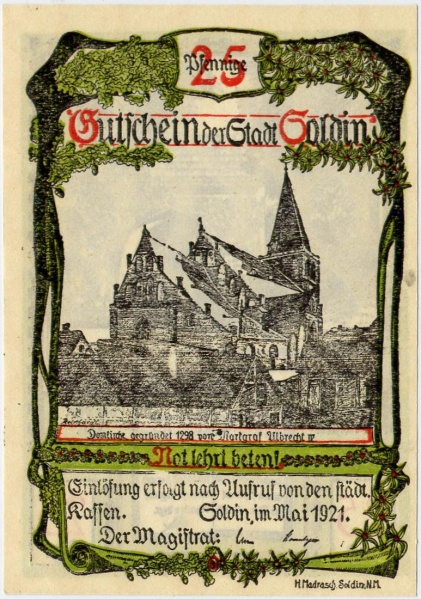 25
Pfennige
Gutschein der Stadt Soldin.
Domkirche gegründet 1298 vom Markgraf Albrecht IV
Not lehrt beten!
Einlösung erfolgt nach Aufruf von den städt.
Kassen. Soldin, im Mai 1921.
Der Magistrat:
H. Madrasch, Soldin, N.M.